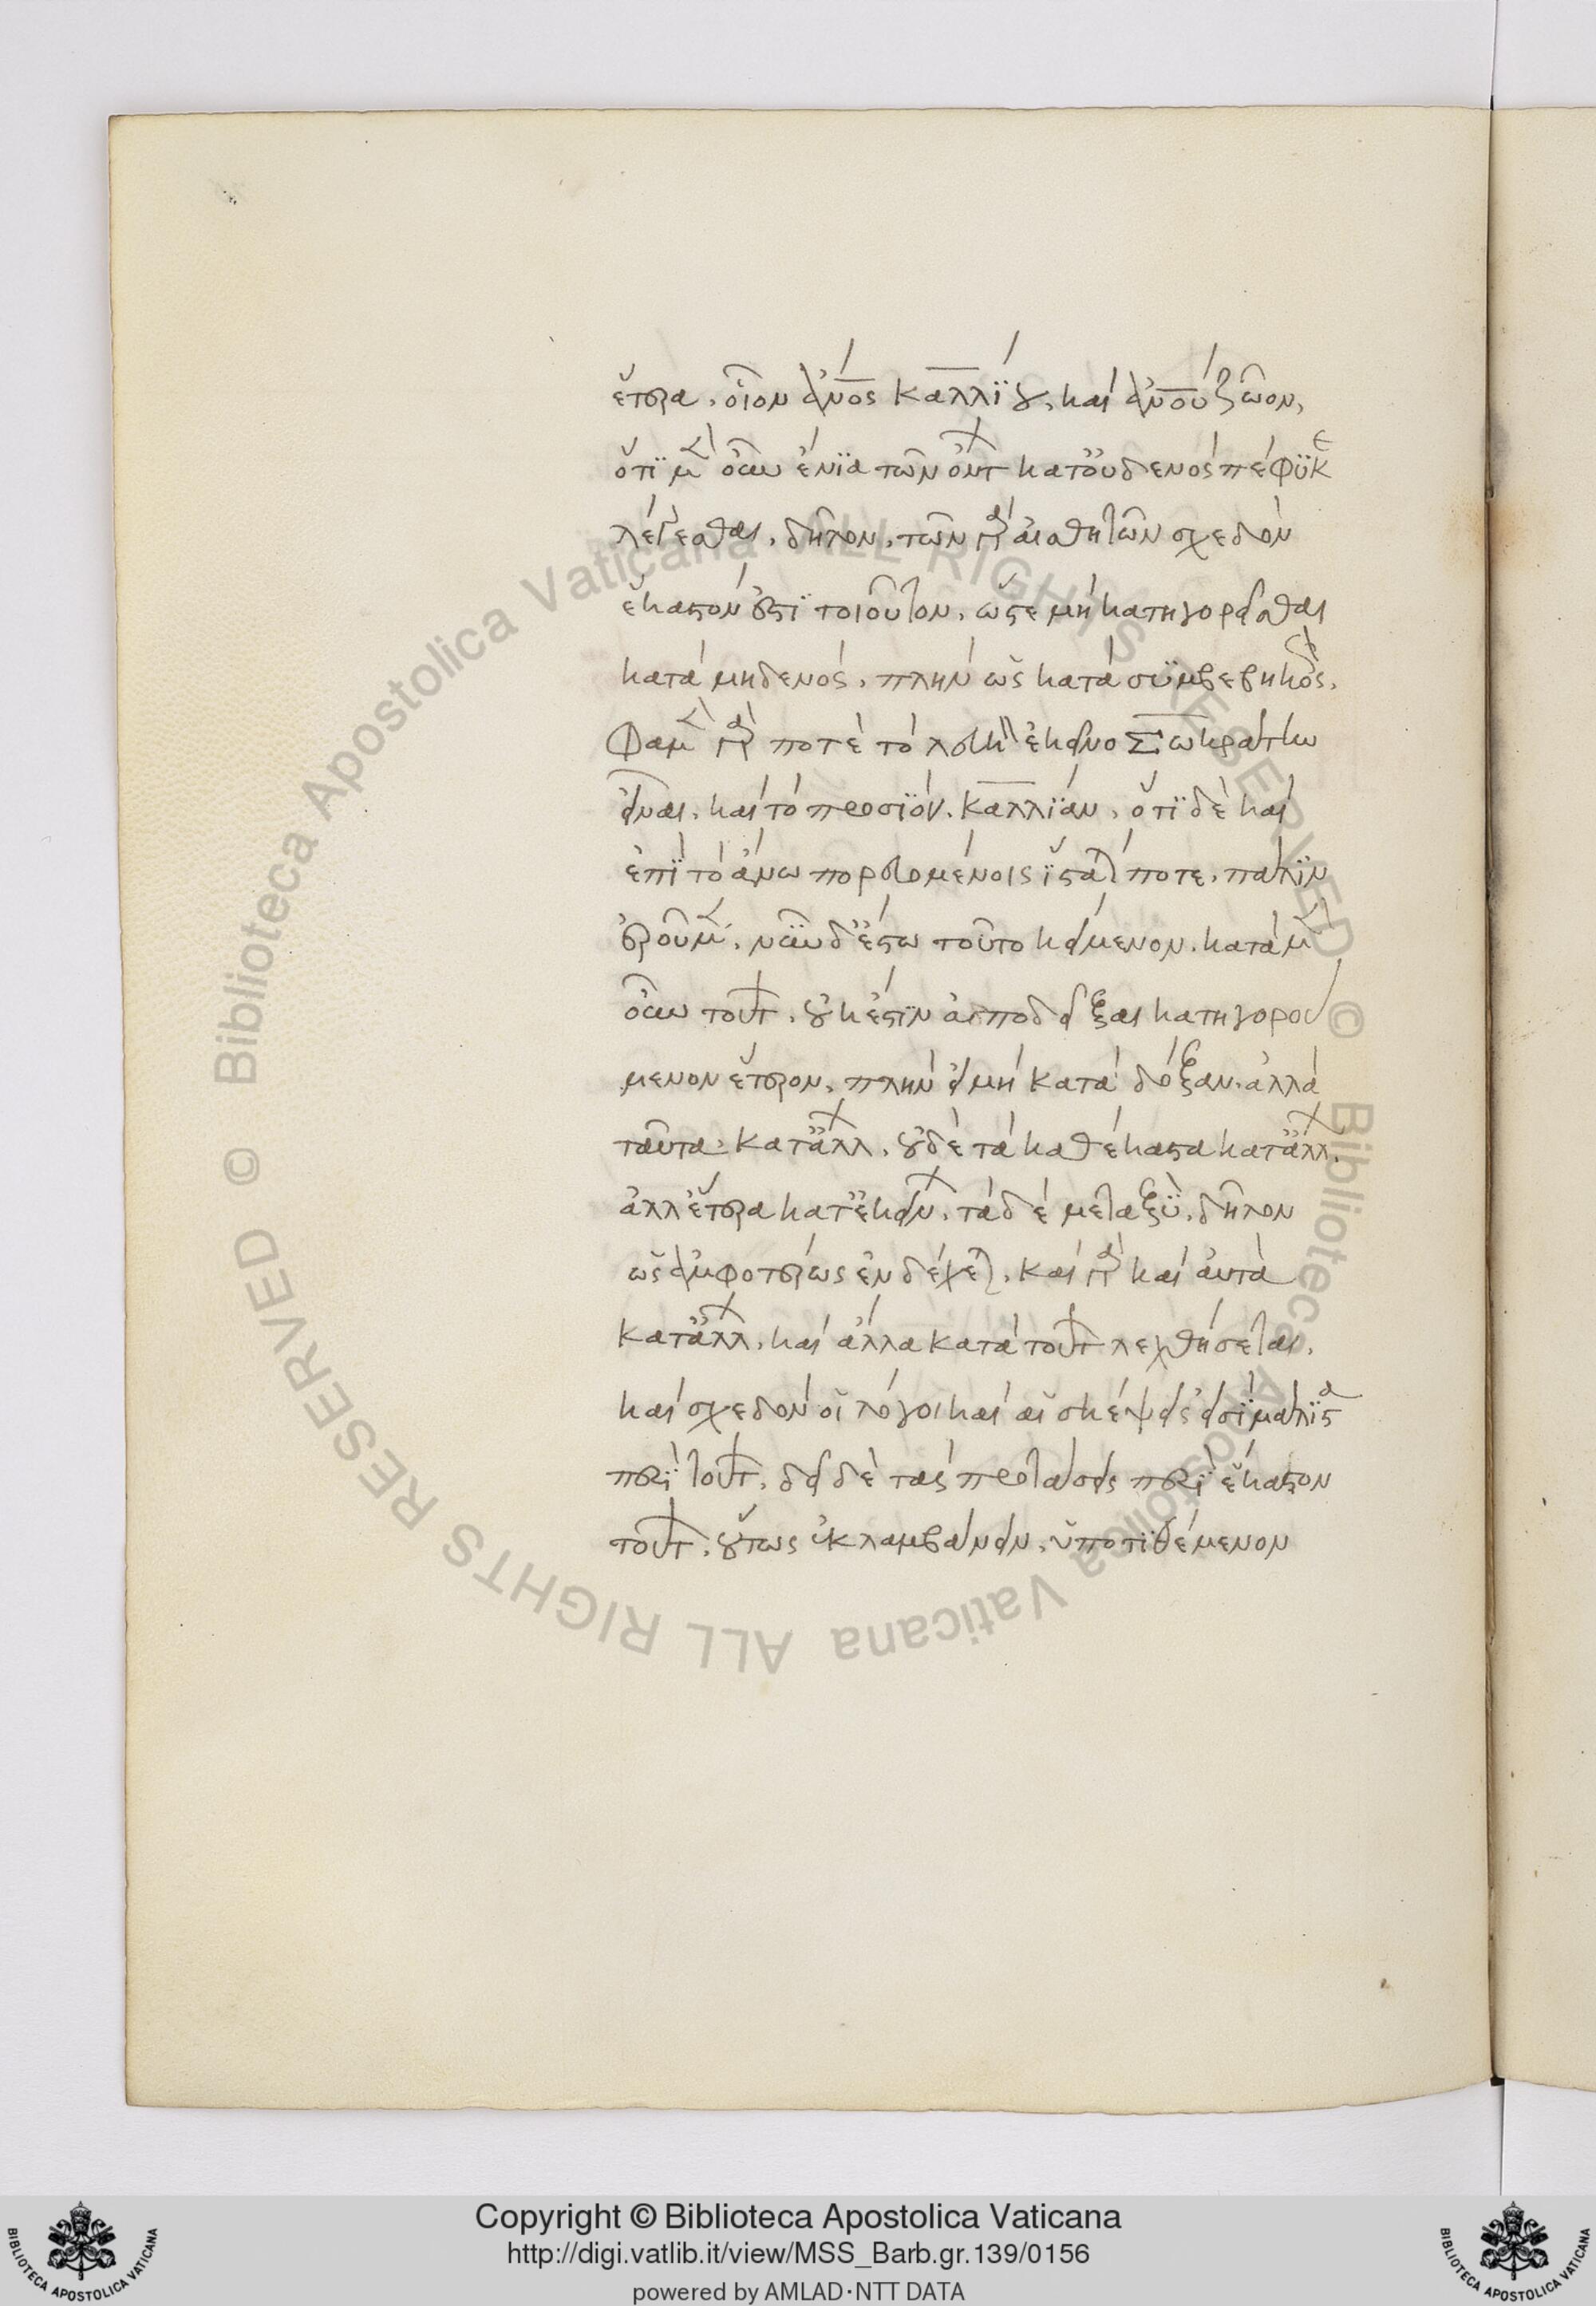 ἕτερα, οἷον ἄνος καλλίου, καὶ ἀνου ζῶον,
ὅτι μ οὖν ἔνια τῶν ὄντ κατ' οὐδενὸς πέφυκε
λέγεσθαι, δῆλον, τῶν γὰρ αἰσθητῶν σχεδὸν
ἕκαστόν ἐστι τοιοῦτον, ὥστε μὴ κατηγορεῖσθαι
κατὰ μηδενός, πλὴν ὡς κατὰ συμβεβηκός,
φαμὲν γάρ ποτε τὸ λευκὸν ἐκεῖνο Σωκράτην
εἶναι, καὶ τὸ προσϊόν, καλλίαν, ὅτι δὲ καὶ
ἐπὶ τὸ ἄνω πορευομένοις ἵσταταί ποτε, πάλιν
ἐροῦμεν, νῦν δ' ἔστω τοῦτο κείμενον, κατὰ μὲν
οὖν τούτ, οὐκ ἔστιν ἀποδεῖξαι κατηγορού
μενον ἕτερον, πλὴν εἰ μὴ κατὰ δόξαν, ἀλλὰ
ταῦτα κατ' ἄλλ, οὐδὲ τὰ καθ' ἕκαστα κατ' ἄλλ,
ἀλλ' ἕτερα κατ' ἐκείν, τὰ δὲ μεταξὺ, δῆλον
ὡς ἀμφοτέρως ἐνδέχεται, καὶ γὰρ καὶ αὐτὰ
κατ' ἄλλ, καὶ ἄλλα κατὰ τούτ λεχθήσεται,
καὶ σχεδὸν οἱ λόγοι καὶ αἱ σκέψεις εἰσὶ μάλιστα
περὶ τούτ, δεῖ δὲ τὰς προτάσεις περὶ ἕκαστον
τούτ, οὕτως ἐκλαμβάνειν, ὑποτιθέμενον
© Biblioteca Apostolica Vaticana ALL RIGHTS RESERVED © Biblioteca Apostolica Vaticana ALL RIGHTS RESERVED
Copyright © Biblioteca Apostolica Vaticana
http://digi.vatlib.it/view/MSS_Barb.gr.139/0156
powered by AMLAD·NTT DATA
BIBLIOTECA APOSTOLICA VATICANA
BIBLIOTECA APOSTOLICA VATICANA